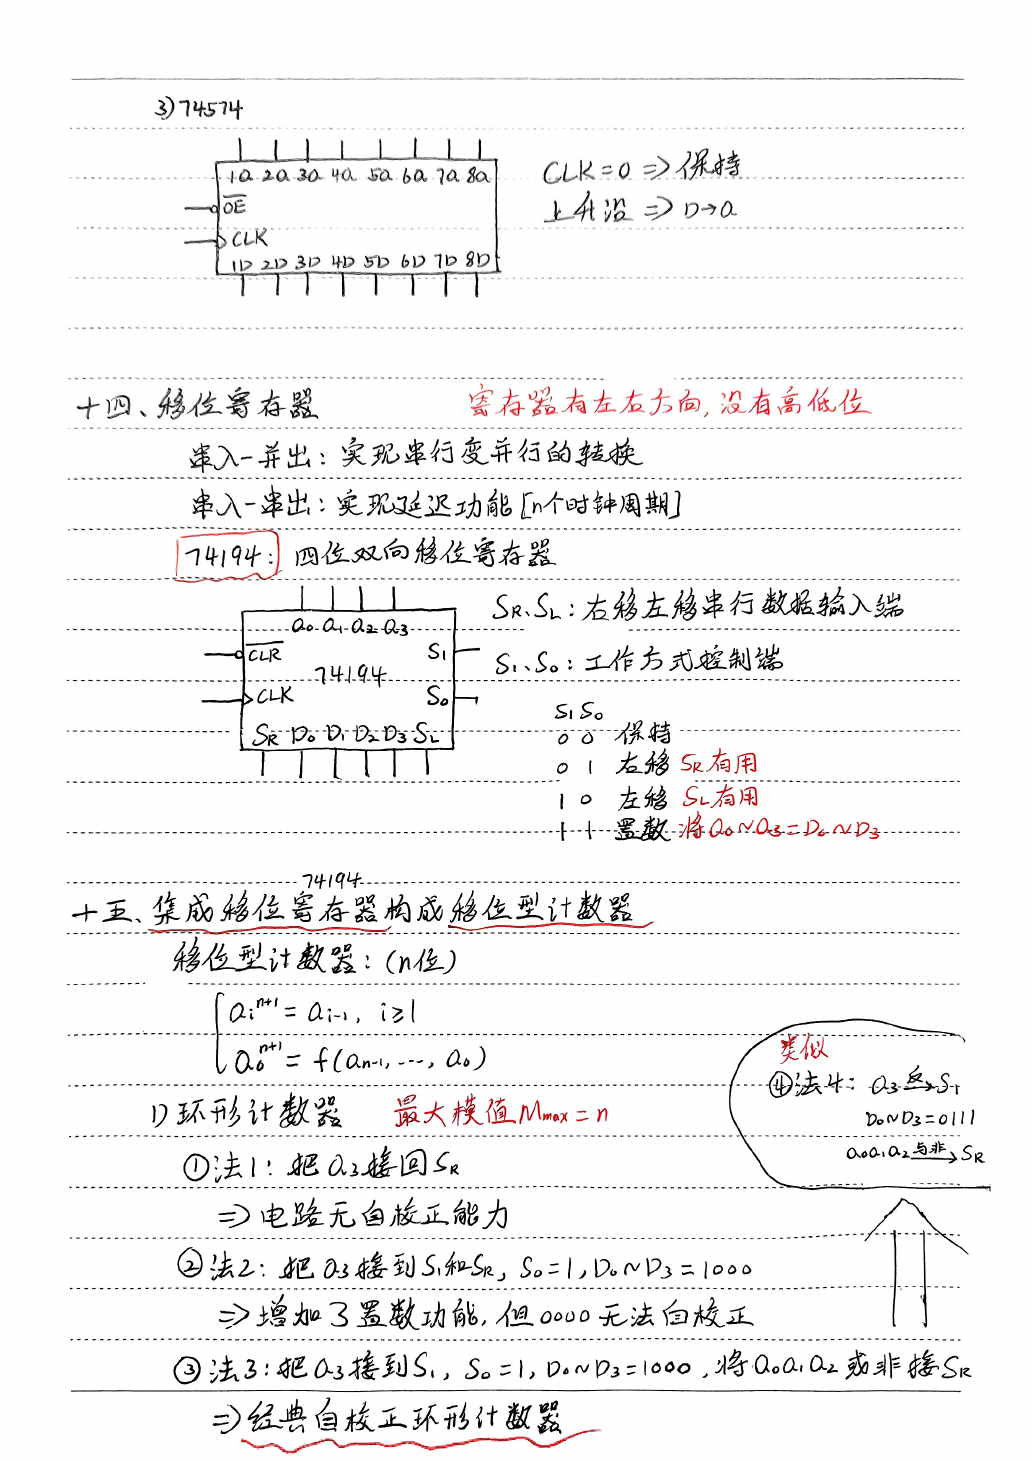 3) 74574
1Q 2Q 3Q 4Q 5Q 6Q 7Q 8Q
OE
CLK
1D 2D 3D 4D 5D 6D 7D 8D
CLK=0 ⇒ 保持
上升沿 ⇒ D→Q
十四、移位寄存器
寄存器有左右方向,没有高低位
串入-并出: 实现串行变并行的转换
串入-串出: 实现延迟功能 [n个时钟周期]
74194: 四位双向移位寄存器
Q0 Q1 Q2 Q3
CLR
S1
74194
CLK
S0
SR D0 D1 D2 D3 SL
SR、SL: 右移左移串行数据输入端
S1、S0: 工作方式控制端
S1 S0
0 0 保持
0 1 右移 SR有用
1 0 左移 SL有用
1 1 置数 将Q0~Q3=D0~D3
74194
十五、集成移位寄存器构成移位型计数器
移位型计数器: (n位)
Qi^n+1 = Qi-1, i≥1
Q0^n+1 = f(Qn-1, ..., Q0)
1) 环形计数器 最大模值Mmax=n
①法1: 把Q3接回SR
⇒ 电路无自校正能力
②法2: 把Q3接到S1和SR, S0=1, D0~D3=1000
⇒ 增加了置数功能, 但0000无法自校正
③法3: 把Q3接到S1, S0=1, D0~D3=1000, 将Q0Q1Q2或非接SR
⇒ 经典自校正环形计数器
类似
④法4: Q3 反→ S1
D0~D3=0111
Q0Q1Q2 与非→ SR